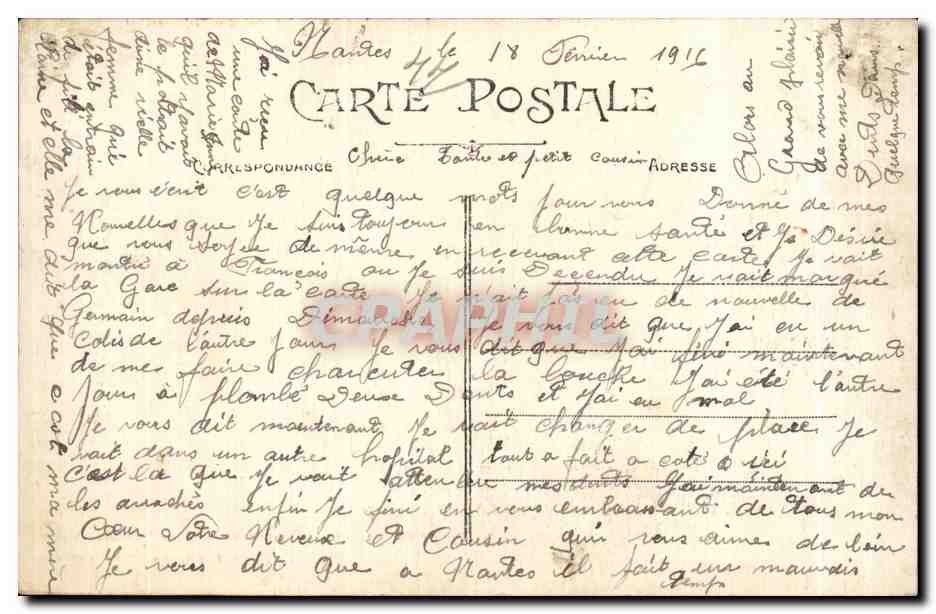 Nantes le 18 Fevrier 1916
44
CARTE POSTALE
CORRESPONDANCE
ADRESSE
Chère Tante et petit cousin
Je vous s'erit c'est quelque mots pour vous Donné de mes
Nouvelles que Je suis toujours en bonne santé et Je Désire
que vous soyée de même en recevant cette carte Je vait
montré à François ou Je suis Decendu Je vait marqué
la Gare sur la carte Je n'ait pas eu de nouvelle de
Germain depuis Dimanche Je vous dit que J'ai eu un
Colis de l'autre Jours Je vous dit que J'ai fini maintenant
de mes faire charcuter la bouche J'ai été l'autre
Jours à plombé Deuse Dents et J'ai eu mal
Je vous dit maintenant Je vait changer de place Je
vait dans un autre hopital tout a fait a coté d'ici
c'est la que Je vait attendre mes dents J'ai maintenant de
les arrachés enfin Je fini en vous embrassant de tous mon
Cœur Votre Neveux et Cousin qui vous aimes de loin
Je vous dit que a Nantes il fait un mauvais
temps
J'ai reçu
une carte
de Marie
qu'il n'avait
le portrait
d'une vielle
femme qui
était entrain
de
laine et elle me dit que c'est ma mère
Alors au
Grand plaisir
de vous revoir
avec me
Dents
dans
quelque temps.
CPAPHIL